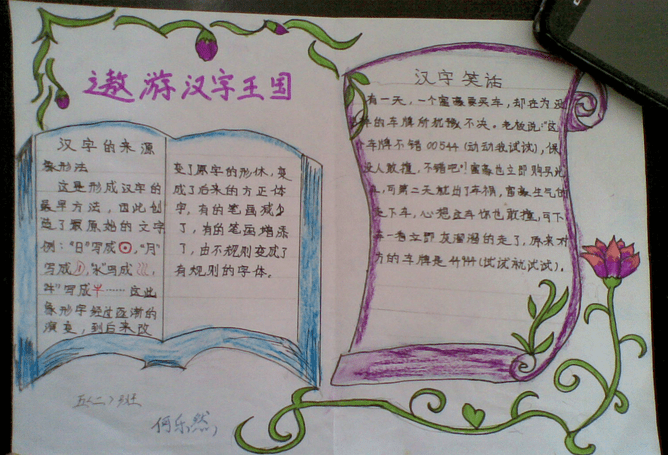 遨游汉字王国
汉字的来源
象形法
这是形成汉字的
最早方法，因此创
造了最原始的文字
例："日"写成⊙，"月"
写成，"水"写成
写成……这些
象形字经过逐渐的
演变，到后来改
变了原字的形体，变
成了后来的方正体
字，有的笔画减少
了，有的笔画增添
了，由不规则变成了
有规则的字体。
五〈二〉班
何乐然
汉字笑话
有一天，一个富豪要买车，却在为选
车的车牌所犹豫不决。老板说："这
车牌不错00544(动动我试试)，保
没人敢撞，不错吧！"富豪也立即购买此
，可第二天就出了车祸，富豪生气的
走下车，心想这车你也敢撞，可下
车一看立即灰溜溜的走了，原来对
方的车牌是44944(试试就试试)。